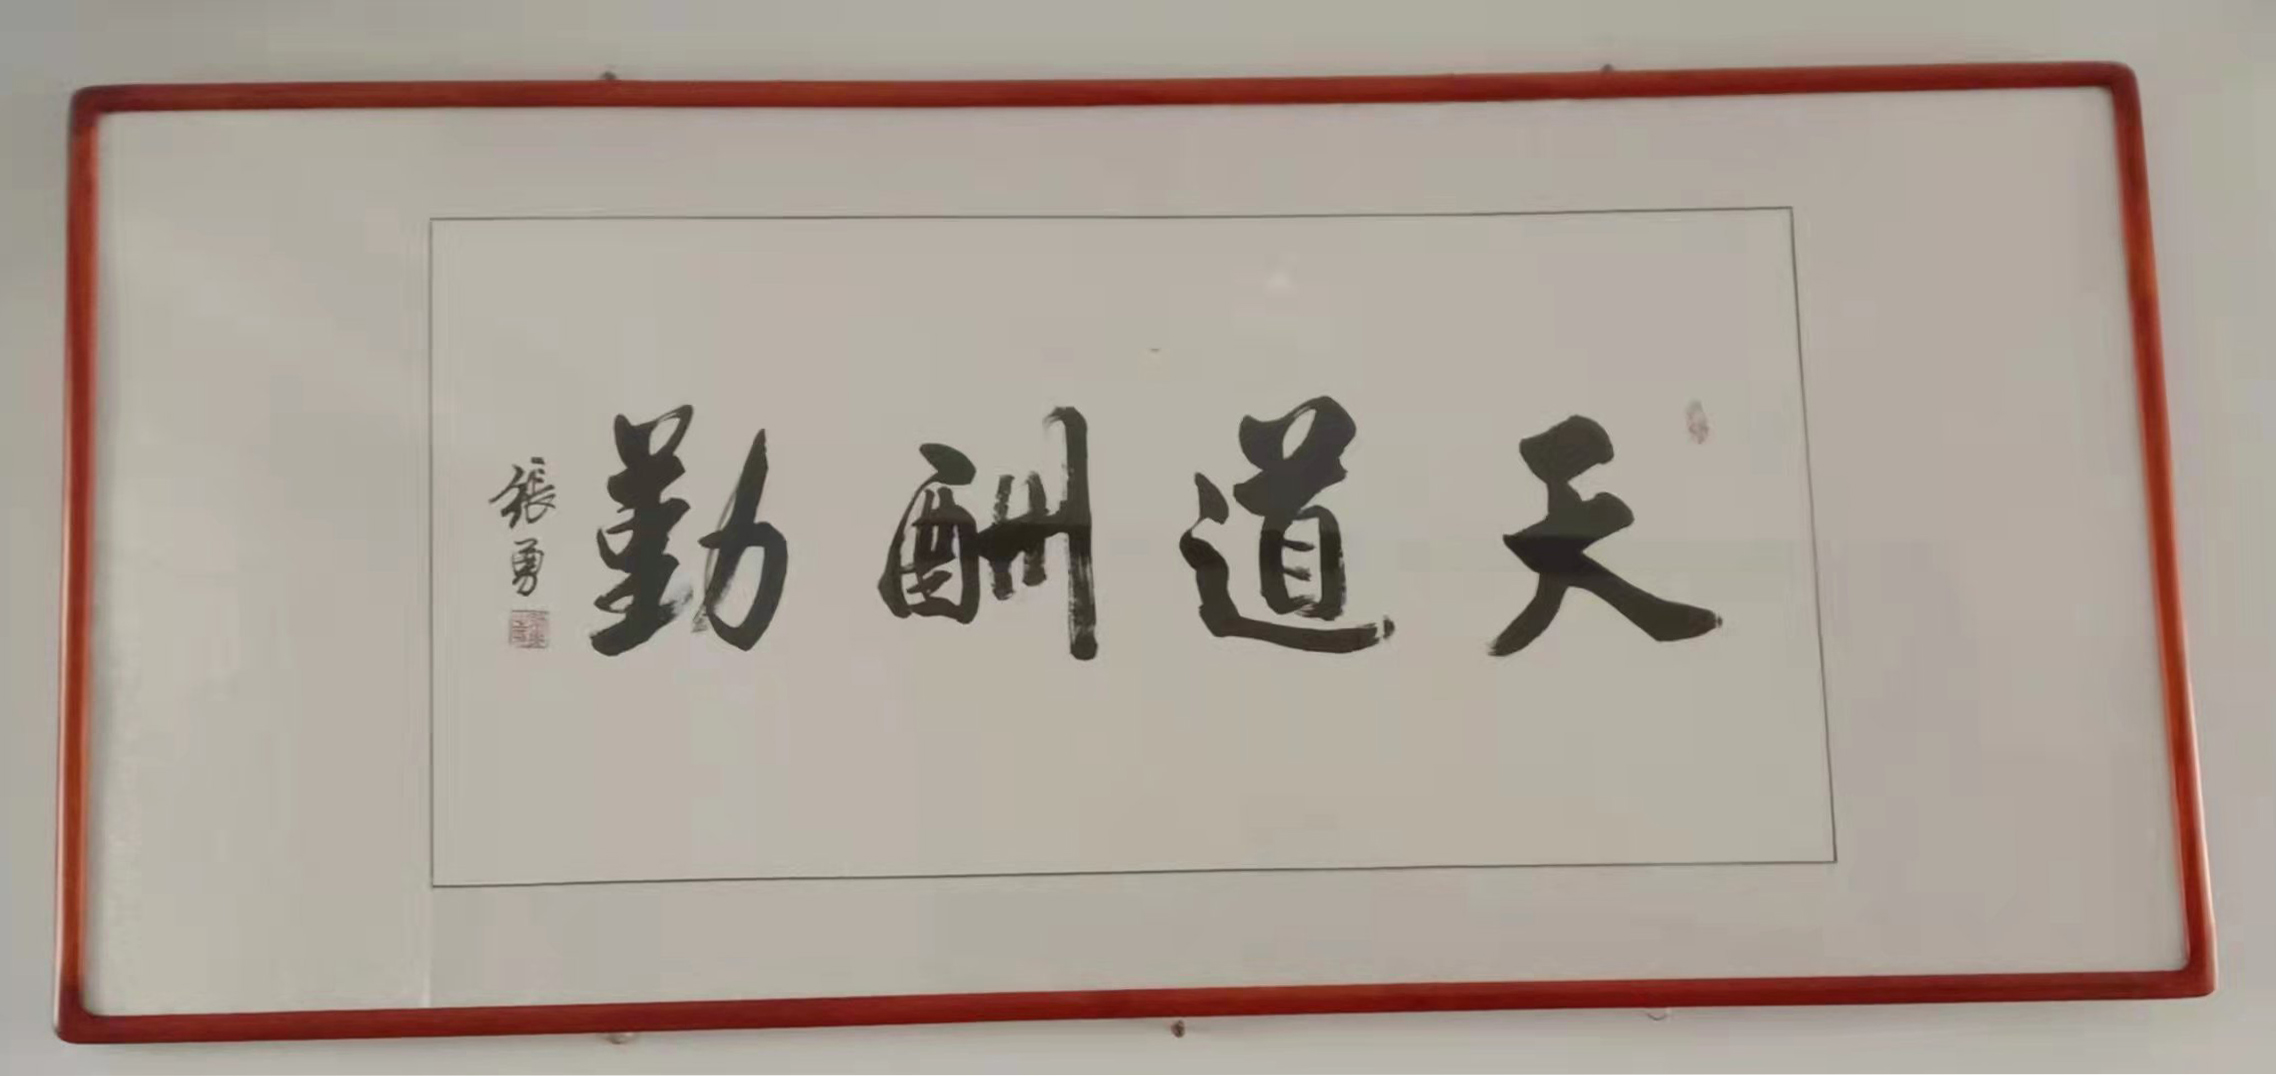 天道酬勤
張勇